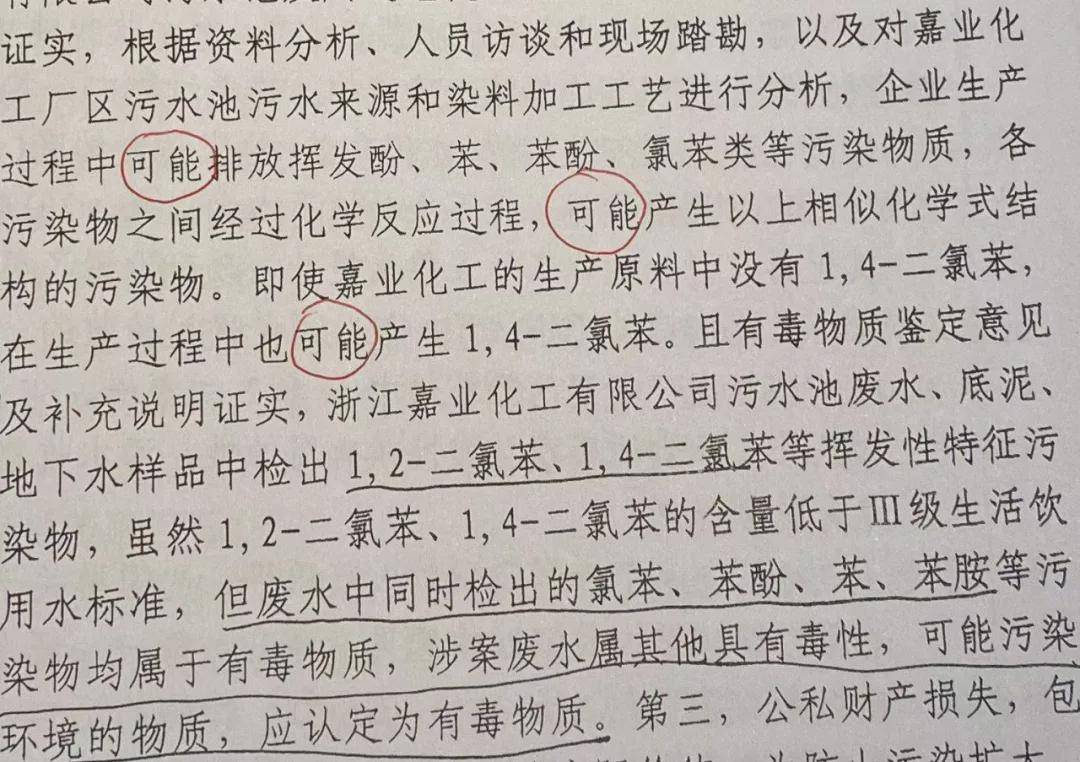 证实，根据资料分析、人员访谈和现场踏勘，以及对嘉业化
工厂区污水池污水来源和染料加工工艺进行分析，企业生产
过程中可能排放挥发酚、苯、苯酚、氯苯类等污染物质，各
污染物之间经过化学反应过程，可能产生以上相似化学式结
构的污染物。即使嘉业化工的生产原料中没有1,4-二氯苯，
在生产过程中也可能产生1,4-二氯苯。且有毒物质鉴定意见
及补充说明证实，浙江嘉业化工有限公司污水池废水、底泥、
地下水样品中检出1,2-二氯苯、1,4-二氯苯等挥发性特征污
染物，虽然1,2-二氯苯、1,4-二氯苯的含量低于Ⅲ级生活饮
用水标准，但废水中同时检出的氯苯、苯酚、苯、苯胺等污
染物均属于有毒物质，涉案废水属其他具有毒性，可能污染
环境的物质，应认定为有毒物质。第三，公私财产损失，包